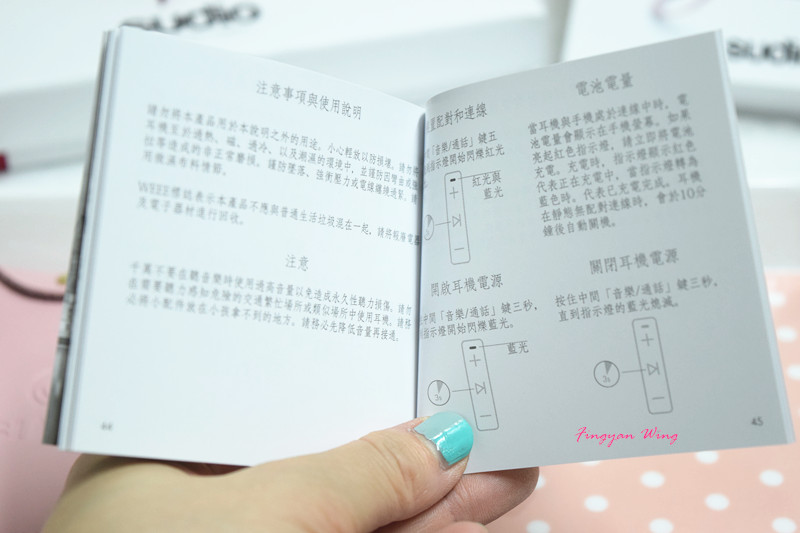 sudio
sudio
注意事項與使用說明
請勿將本產品用於本說明之外的用途。小心輕放以防損壞。請勿將
耳機至於過熱、磁、過冷、以及潮濕的環境中，並謹防因彎曲或
拉等造成的非正常磨損。謹防墜落、強衝壓力或電線纏繞過緊。請
用微濕布料情節。
WEEE標誌表示本產品不應與普通生活垃圾混在一起。請將報廢電器
及電子器材進行回收。
注意
千萬不要在聽音樂時使用過高音量以免造成永久性聽力損傷。請勿
在需要聽力感知危險的交通繁忙場所或類似場所中使用耳機。請務
必將小配件放在小孩拿不到的地方。請務必先降低音量再接通。
44
配對和連線
「音樂/通話」鍵五
指示燈開始閃爍紅光
紅光與
藍光
開啟耳機電源
中間「音樂/通話」鍵三秒，
指示燈開始閃爍藍光。
藍光
3s
電池電量
當耳機與手機處於連線中時，電
池電量會顯示在手機螢幕。如果
亮起紅色指示燈，請立即將電池
充電。充電時，指示燈顯示紅色
代表正在充電中，當指示燈轉為
藍色時，代表已充電完成。耳機
在靜態無配對連線時，會於10分
鐘後自動關機。
關閉耳機電源
按住中間「音樂/通話」鍵三秒，
直到指示燈的藍光熄滅。
3s
45
Fingyan Wing